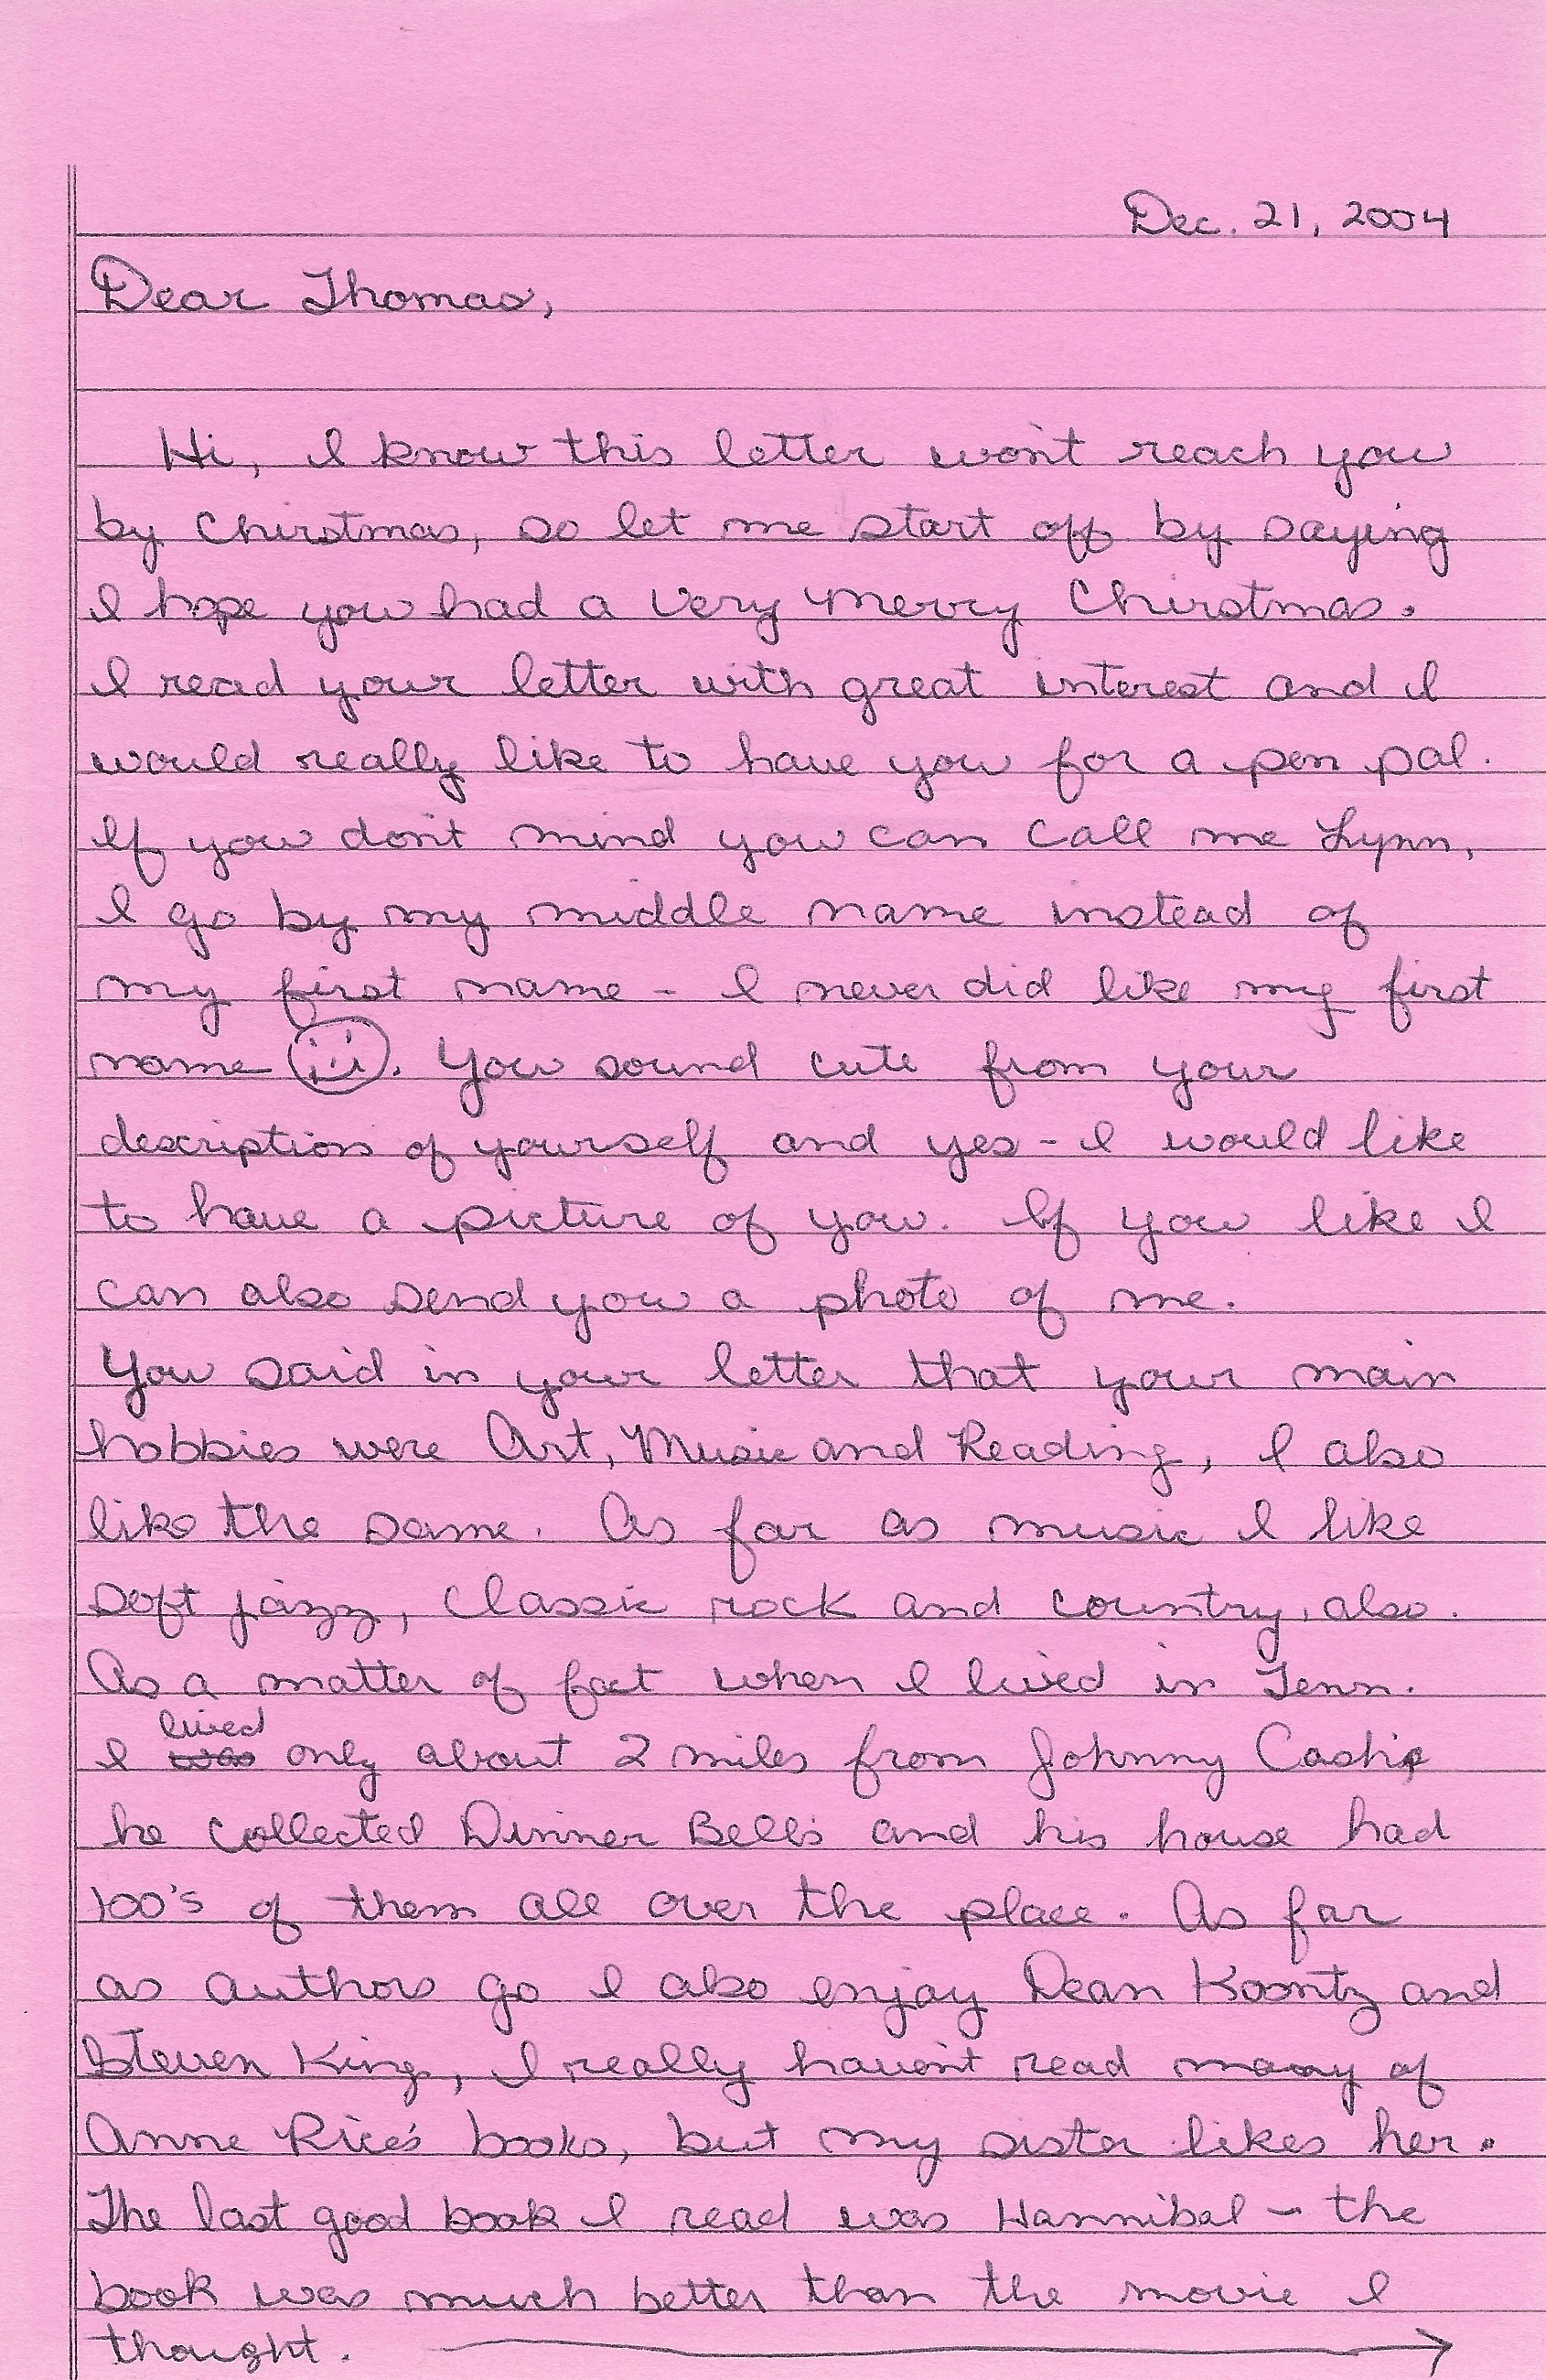 Dec. 21, 2004
Dear Thomas,
Hi, I know this letter won't reach you
by Chirstmas, so let me start off by saying
I hope you had a very merry Chirstmas.
I read your letter with great interest and I
would really like to have you for a pen pal.
If you don't mind you can call me Lynn,
I go by my middle name instead of
my first name - I never did like my first
name ☺. You sound cute from your
description of yourself and yes - I would like
to have a picture of you. If you like I
can also send you a photo of me.
You said in your letter that your main
hobbies were Art, Music and Reading, I also
like the same. As far as music I like
soft jazz, classic rock and country, also.
As a matter of fact when I lived in Tenn.
lived
I was only about 2 miles from Johnny Cash,
he collected Dinner Bell's and his house had
100's of them all over the place. As far
as authors go I also enjoy Dean Koontz and
Steven King, I really haven't read many of
Anne Rice's books, but my sister likes her.
The last good book I read was Hannibal - the
book was much better than the movie I
thought. →